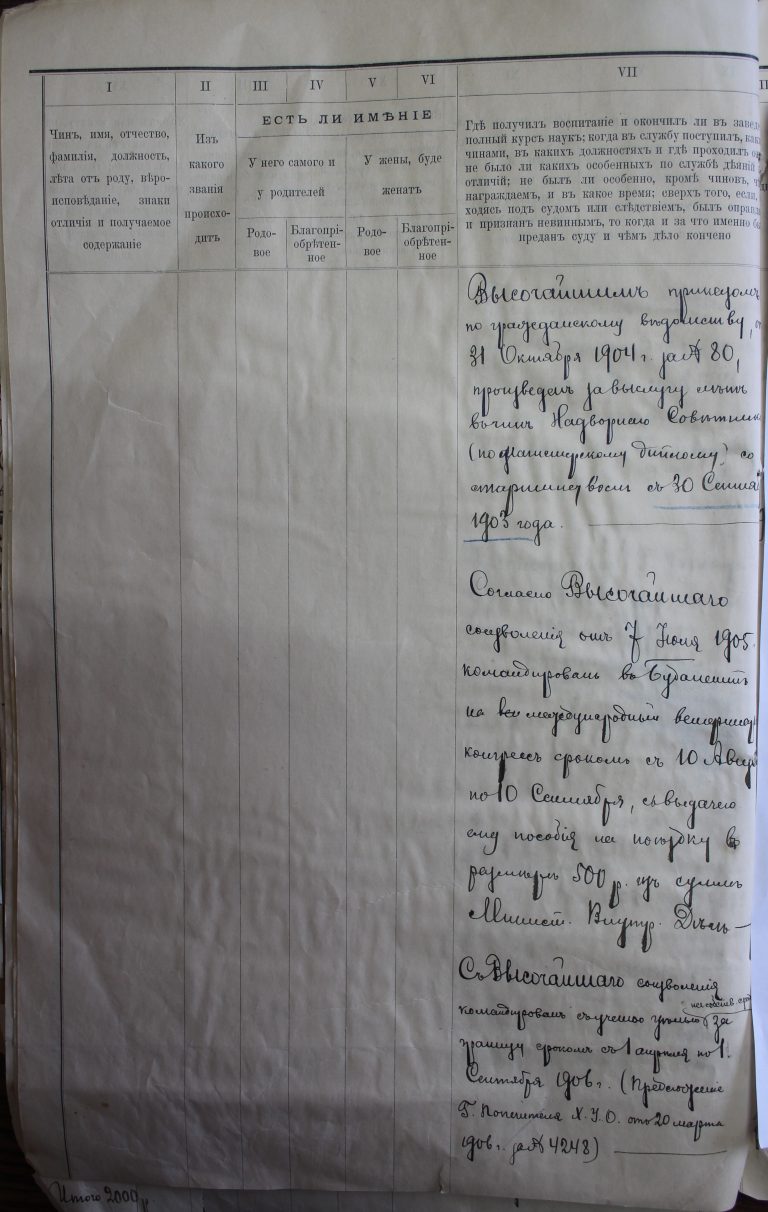 I II III IV V VI VII
Чинъ, имя, отчество,
фамилія, должность,
лѣта отъ роду, вѣро-
исповѣданіе, знаки
отличія и получаемое
содержаніе
Изъ
какого
званія
происхо-
дитъ
ЕСТЬ ЛИ ИМѢНІЕ
У него самого и
у родителей
У жены, буде
женатъ
Родо-
вое
Благопрі-
обрѣтен-
ное
Родо-
вое
Благопрі-
обрѣтен-
ное
Гдѣ получилъ воспитаніе и окончилъ ли въ завед
полный курсъ наукъ; когда въ службу поступилъ, как
чинами, въ какихъ должностяхъ и гдѣ проходилъ о
не было ли какихъ особенныхъ по службѣ дѣяній
отличій; не былъ ли особенно, кромѣ чиновъ, ч
награждаемъ, и въ какое время; сверхъ того, если,
ходясь подъ судомъ или слѣдствіемъ, былъ оправд
и признанъ невиннымъ, то когда и за что именно б
преданъ суду и чѣмъ дѣло кончено
Высочайшимъ приказомъ
по гражданскому вѣдомству, о
31 Октября 1904 г. за № 80,
произведенъ за выслугу лѣтъ
въ чинъ Надворнаго Совѣтник
(по Магистерскому диплому) со
старшинствомъ съ 30 Сентя
1903 года.
Согласно Высочайшаго
соизволенія отъ 7 Іюня 1905.
командированъ въ Будапештъ
на международный ветеринар
конгрессъ срокомъ съ 10 Авгус
по 10 Сентября, съ выдачею
ему пособія на поѣздку въ
размѣрѣ 500 р. изъ суммъ
Минист. Внутр. Дѣлъ —
Съ Высочайшаго соизволенія
командированъ съ ученою цѣлью за
границу срокомъ съ 1 апрѣля по 1.
Сентября 1906 г. (Предложеніе
Г. Попечителя Х. У. О. отъ 20 марта
1906 г. за № 4248)
Итого 2000 р.